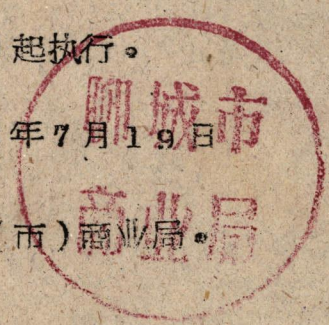 起执行。
年7月19日
（市）商业局。
聊城市
商业局